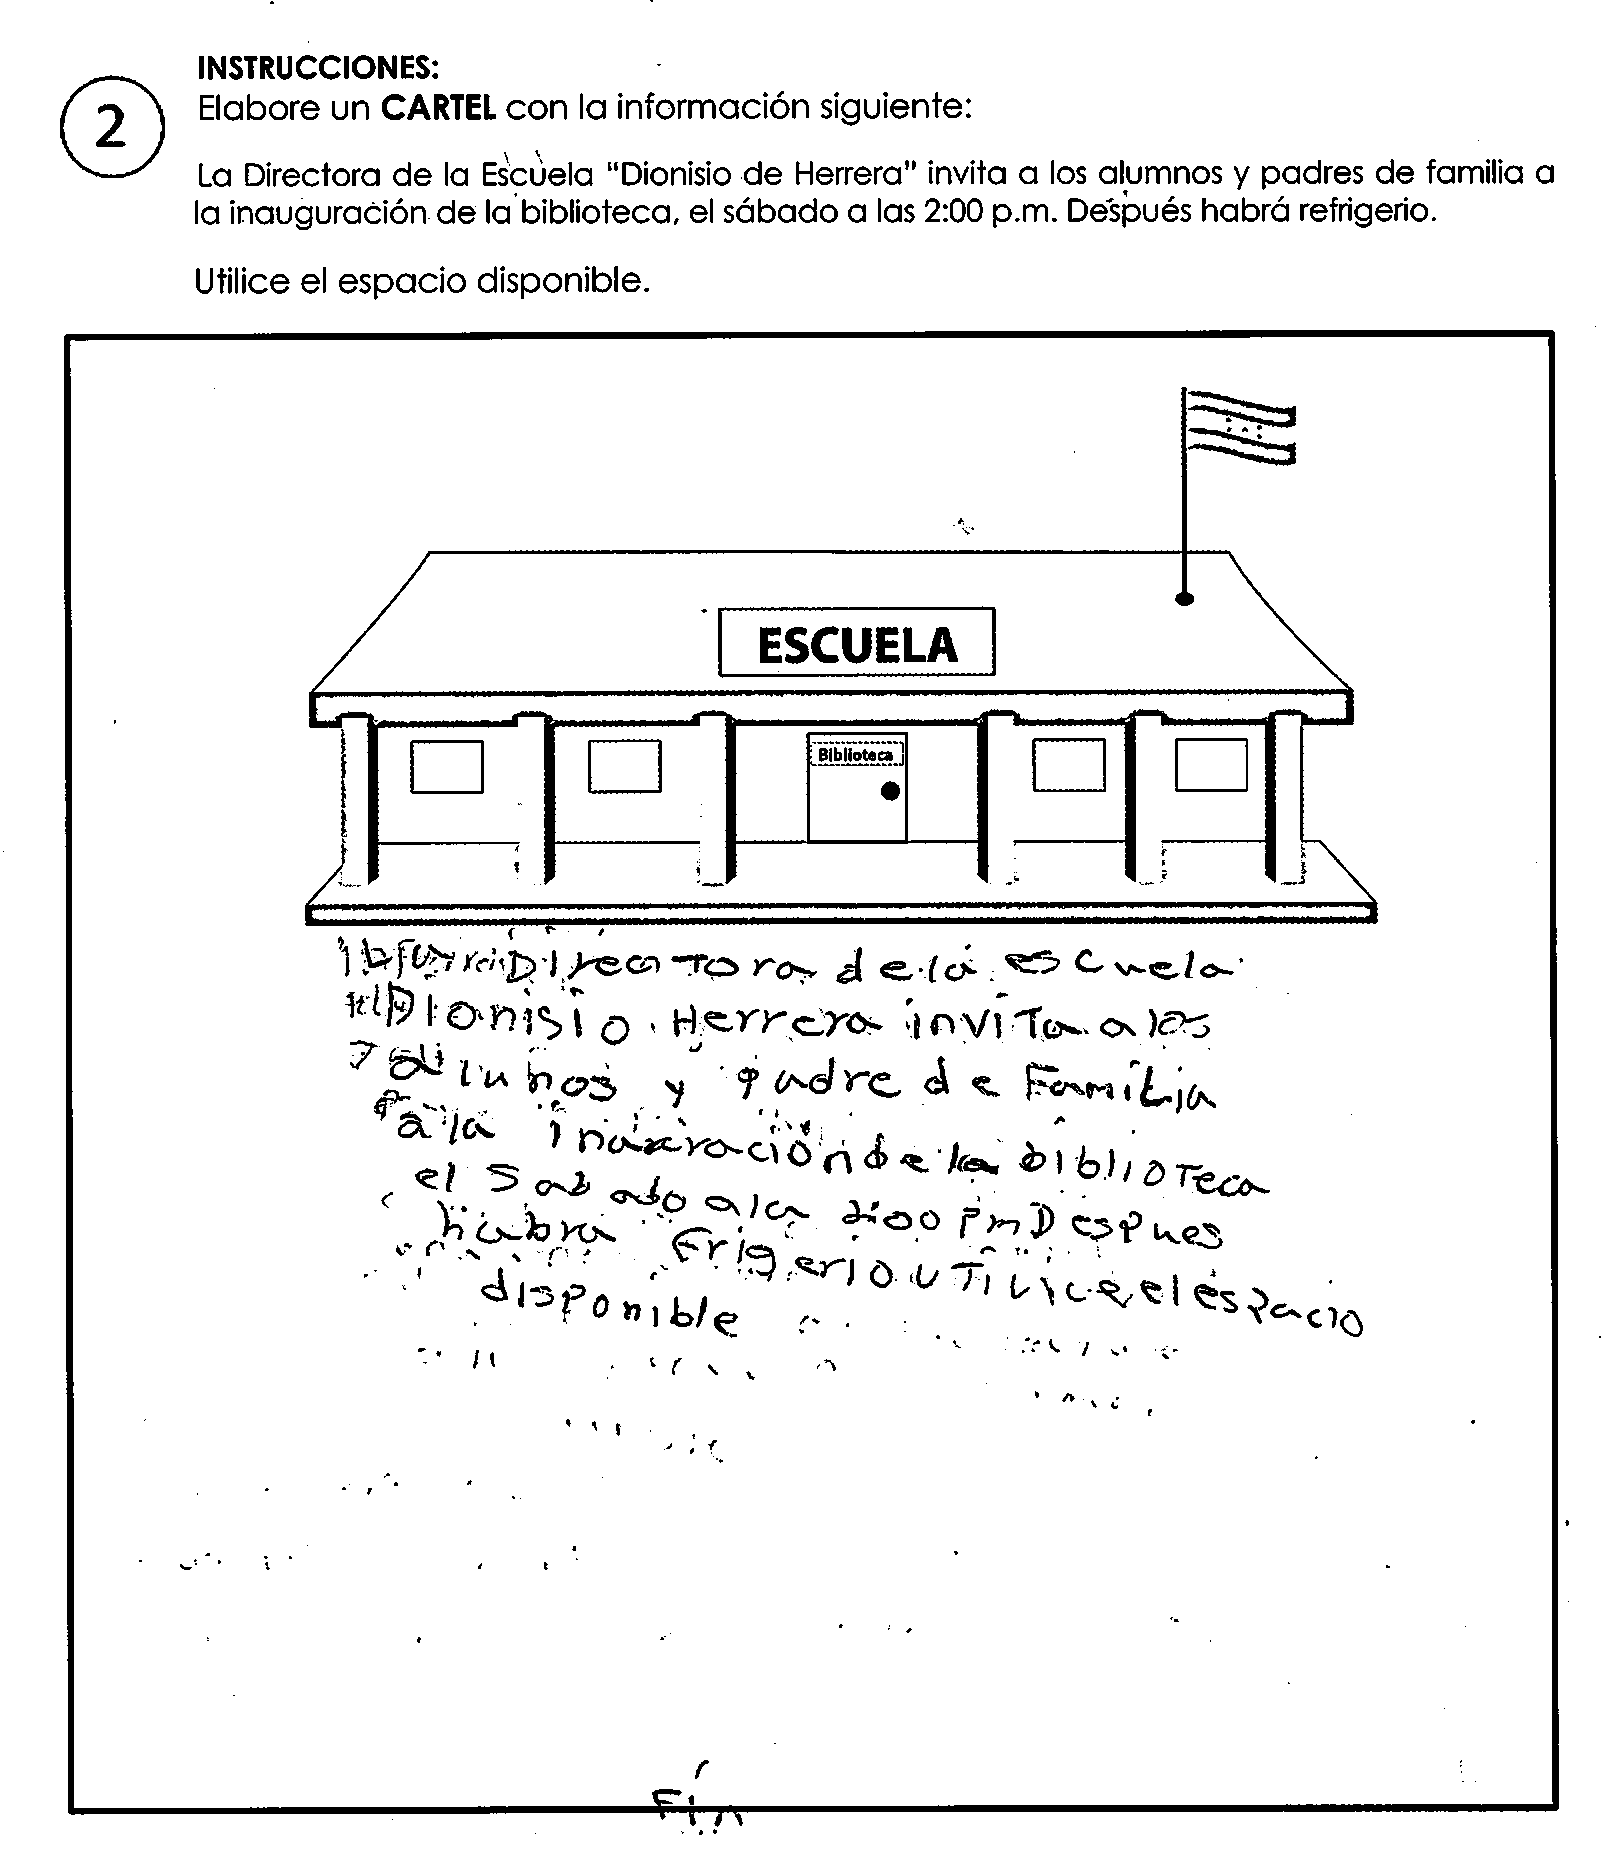 INSTRUCCIONES:
2
Elabore un CARTEL con la información siguiente:
La Directora de la Escuela "Dionisio de Herrera" invita a los alumnos y padres de familia a
la inauguración de la biblioteca, el sábado a las 2:00 p.m. Después habrá refrigerio.
Utilice el espacio disponible.
ESCUELA
Biblioteca
Directora de la escuela
Dionisio Herrera invita a los
alunhos y padre de Familia
a la de la biblioteca
el Sabado a la 2:00 Pm Despues
habra Frigerio utilice el espacio
disponible
Fin